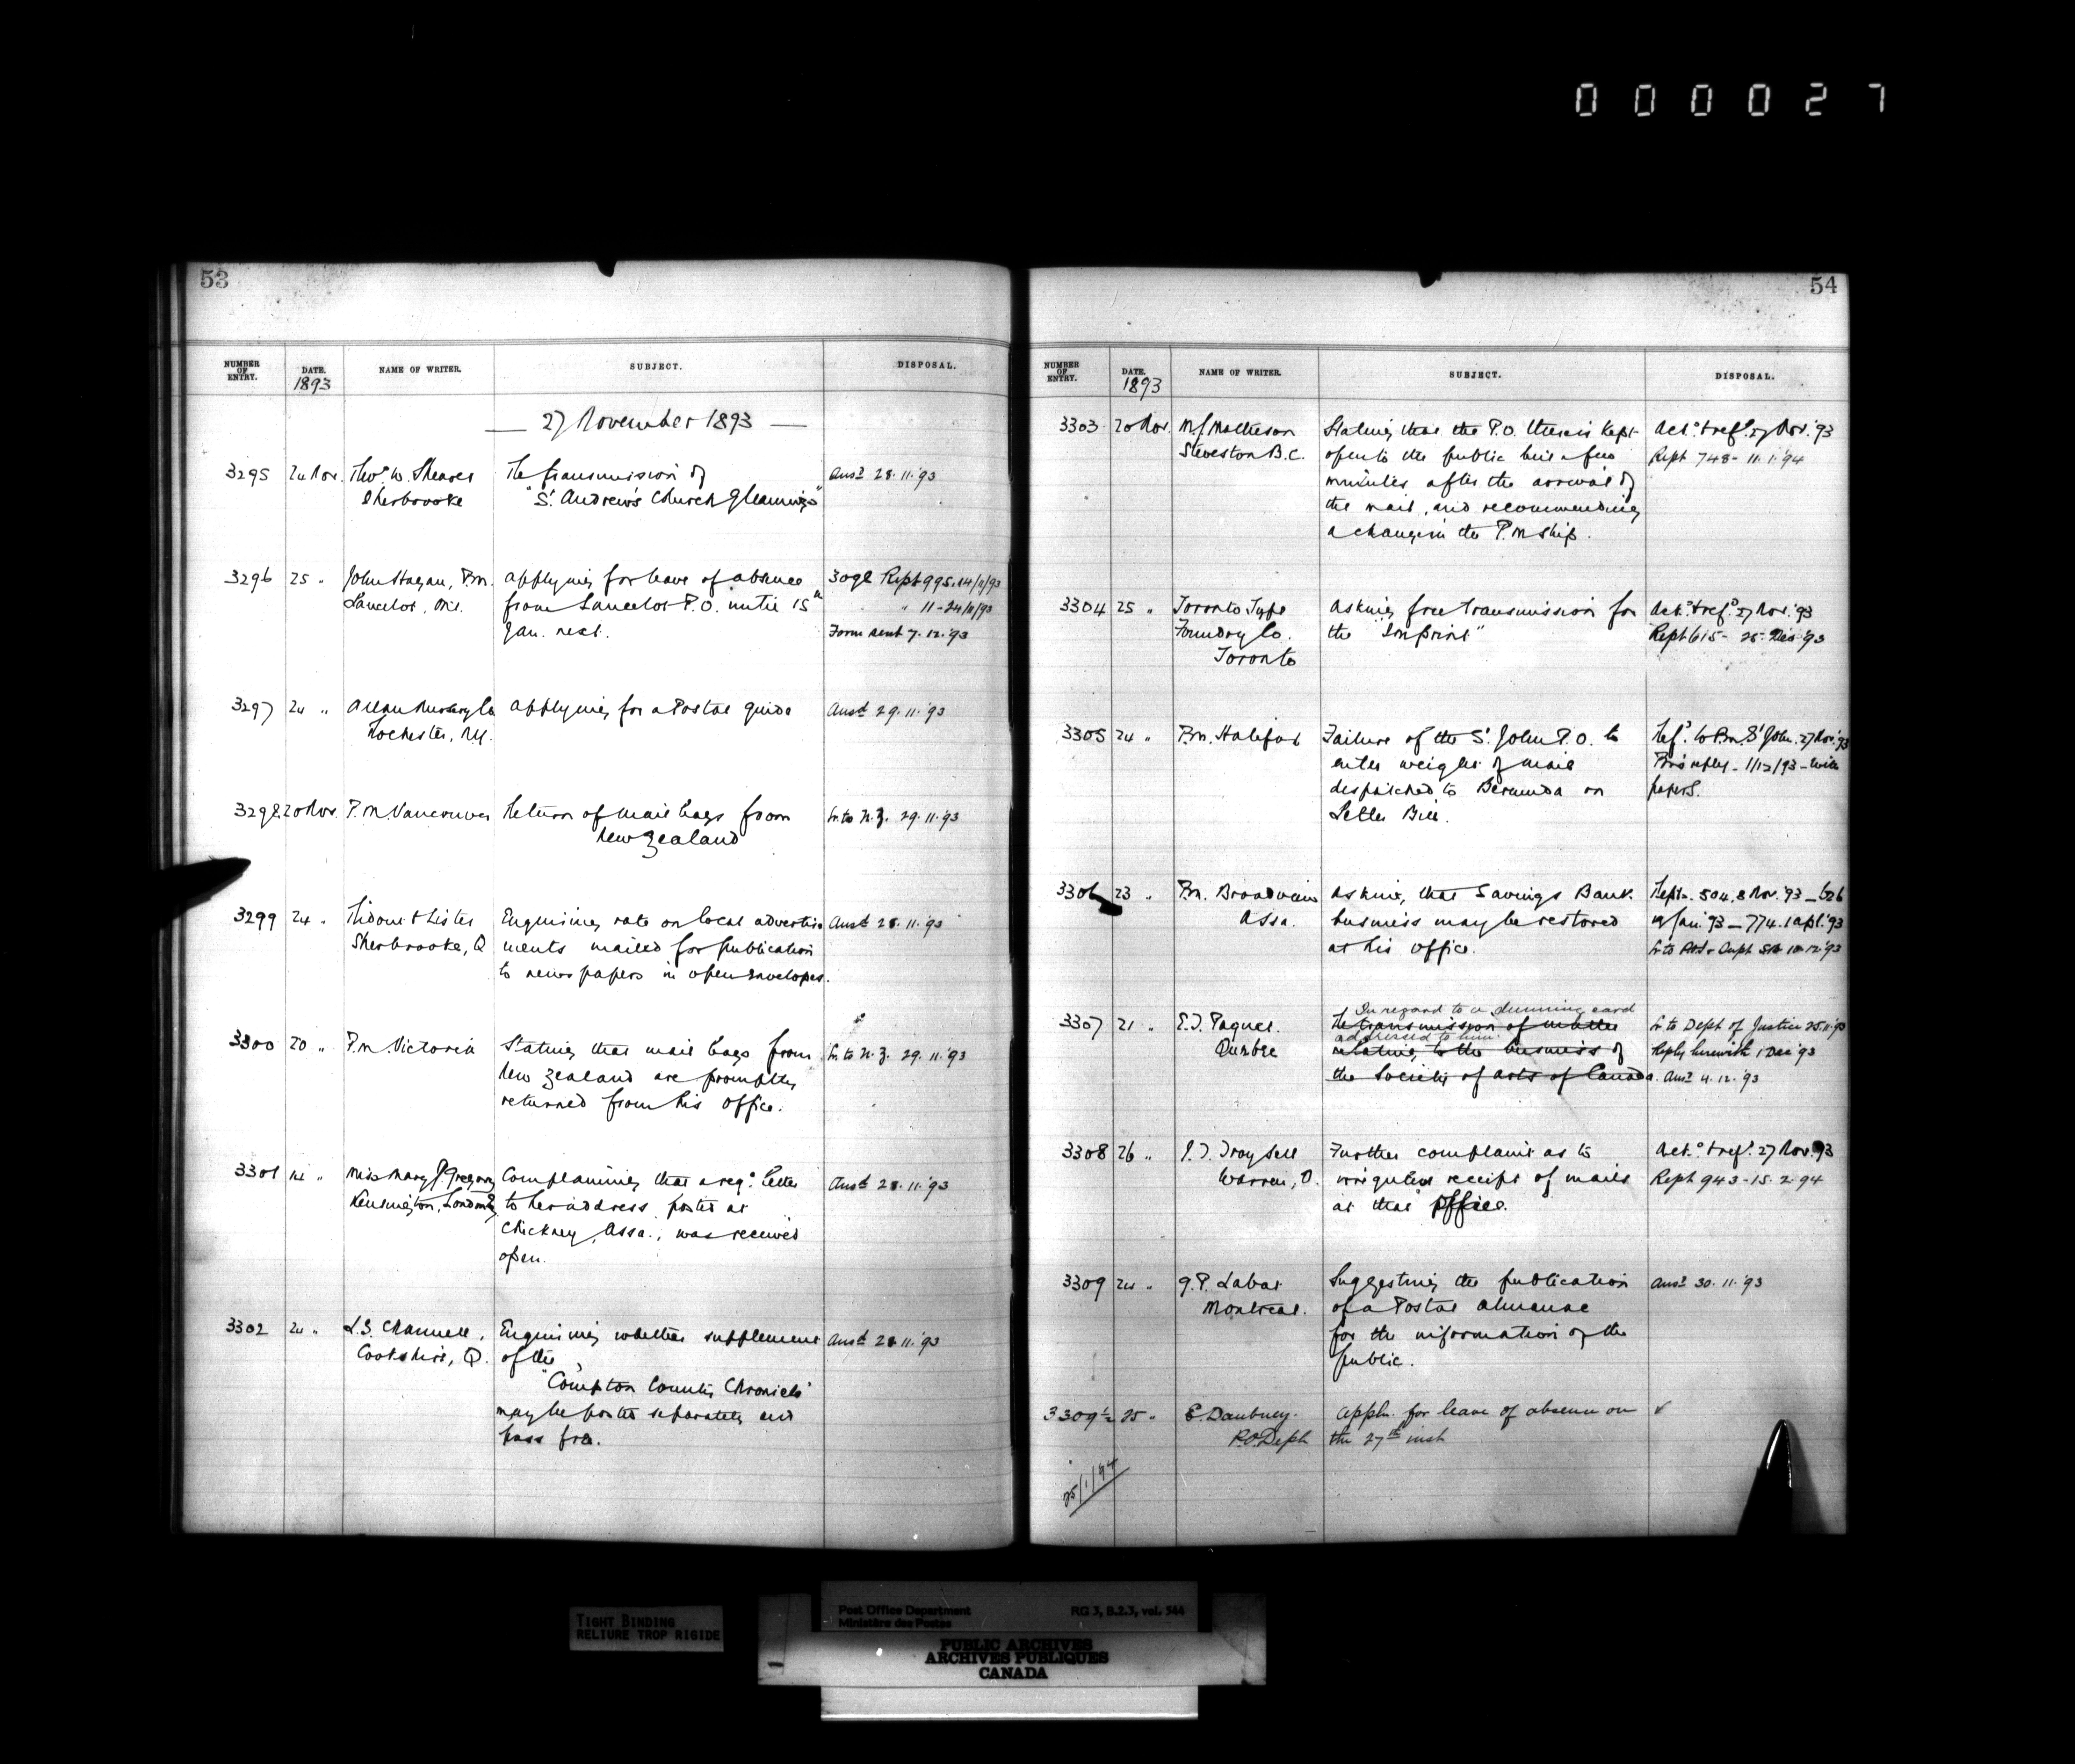 0 0 0 0 2 7
53
NUMBER OF ENTRY. DATE. NAME OF WRITER. SUBJECT. DISPOSAL.
1893
27 November 1893
3295 24 Nov. Thos. W. Shearer The transmission of Ansd 28.11.'93
Sherbrooke "St. Andrew's Church Gleanings"
3296 25 " John Hagan, P.M. Applying for leave of absence 3092 Rept 995. 14/11/93
Lancelot, Ont. from Lancelot P.O. until 15th " 11-24/11/93
Jan. next. Form sent 7.12.'93
3297 24 " Allan Nursery Co Applying for a Postal Guide Ansd 29.11.'93
Rochester, N.Y.
3298 20 Nov. P.M. Vancouver Return of mail bags from Lr. to N.Z. 29.11.'93
New Zealand
3299 24 " Ridout & Lister Enquiring rate on local advertise Ansd 28.11.'93
Sherbrooke, Q ments mailed for publication
to newspapers in open envelopes.
3300 20 " P.M. Victoria Stating that mail bags from Lr. to N.Z. 29.11.'93
New Zealand are promptly
returned from his office.
3301 14 " Miss Mary P. Gregory Complaining that a regd. letter Ansd 28.11.'93
Kensington, London E to her address, posted at
Chickney, Assa., was received
open.
3302 24 " L.S. Channell, Enquiring whether supplement Ansd 28.11.'93
Cookshire, Q. of the
"Compton County Chronicle"
may be posted separately and
pass free.
54
NUMBER OF ENTRY. DATE. NAME OF WRITER. SUBJECT. DISPOSAL.
1893
3303 20 Nov. M.J. Matheson Stating that the P.O. there is kept Ackd. & refd. 27 Nov. '93
Steveston B.C. open to the public but a few Rept 748- 11.1.'94
minutes after the arrival of
the mail, and recommending
a change in the P.Mship.
3304 25 " Toronto Type Asking free transmission for Ackd. & refd. 27 Nov. '93
Foundry Co. the "Imprint" Rept 615- 28 Dec '93
Toronto
3305 24 " P.M. Halifax Failure of the St. John P.O. to Refd. to P.M. St John. 27 Nov. '93
enter weight of mail P.M's reply - 1/12/93 - with
despatched to Bermuda on papers.
Letter Bill.
3306 23 " P.M. Broadview Asking that Savings Bank Rept. 504. 8 Nov. '93 - 626
Assa. business may be restored Jan. '93 - 774. 1 Apl. '93
at his office. Lr. to 10.12.'93
3307 21 " E.T. Paquet. In regard to a dunning card
The transmission of matter Lr. to Dept of Justice 25.11.'93
addressed to him.
Quebec relating to the business of Reply herewith 1 Dec '93
the Society of Arts of Canada. Ansd 4.12.'93
3308 26 " J.T. Graysell Further complaint as to Ackd. & refd. 27 Nov. 93
Warren, O. irregular receipt of mails Rept 943-15.2.94
at that office.
3309 24 " G.P. Labat Suggesting the publication Ansd 30.11.'93
Montreal. of a Postal Almanac
for the information of the
public.
3309½ 25 " E. Daubney. Appln. for leave of absence on ✓
P.O. Dept the 27th inst
25/1/94
TIGHT BINDING
RELIURE TROP RIGIDE
Post Office Department RG 3, B.2.3, vol. 544
Ministère des Postes
PUBLIC ARCHIVES
ARCHIVES PUBLIQUES
CANADA